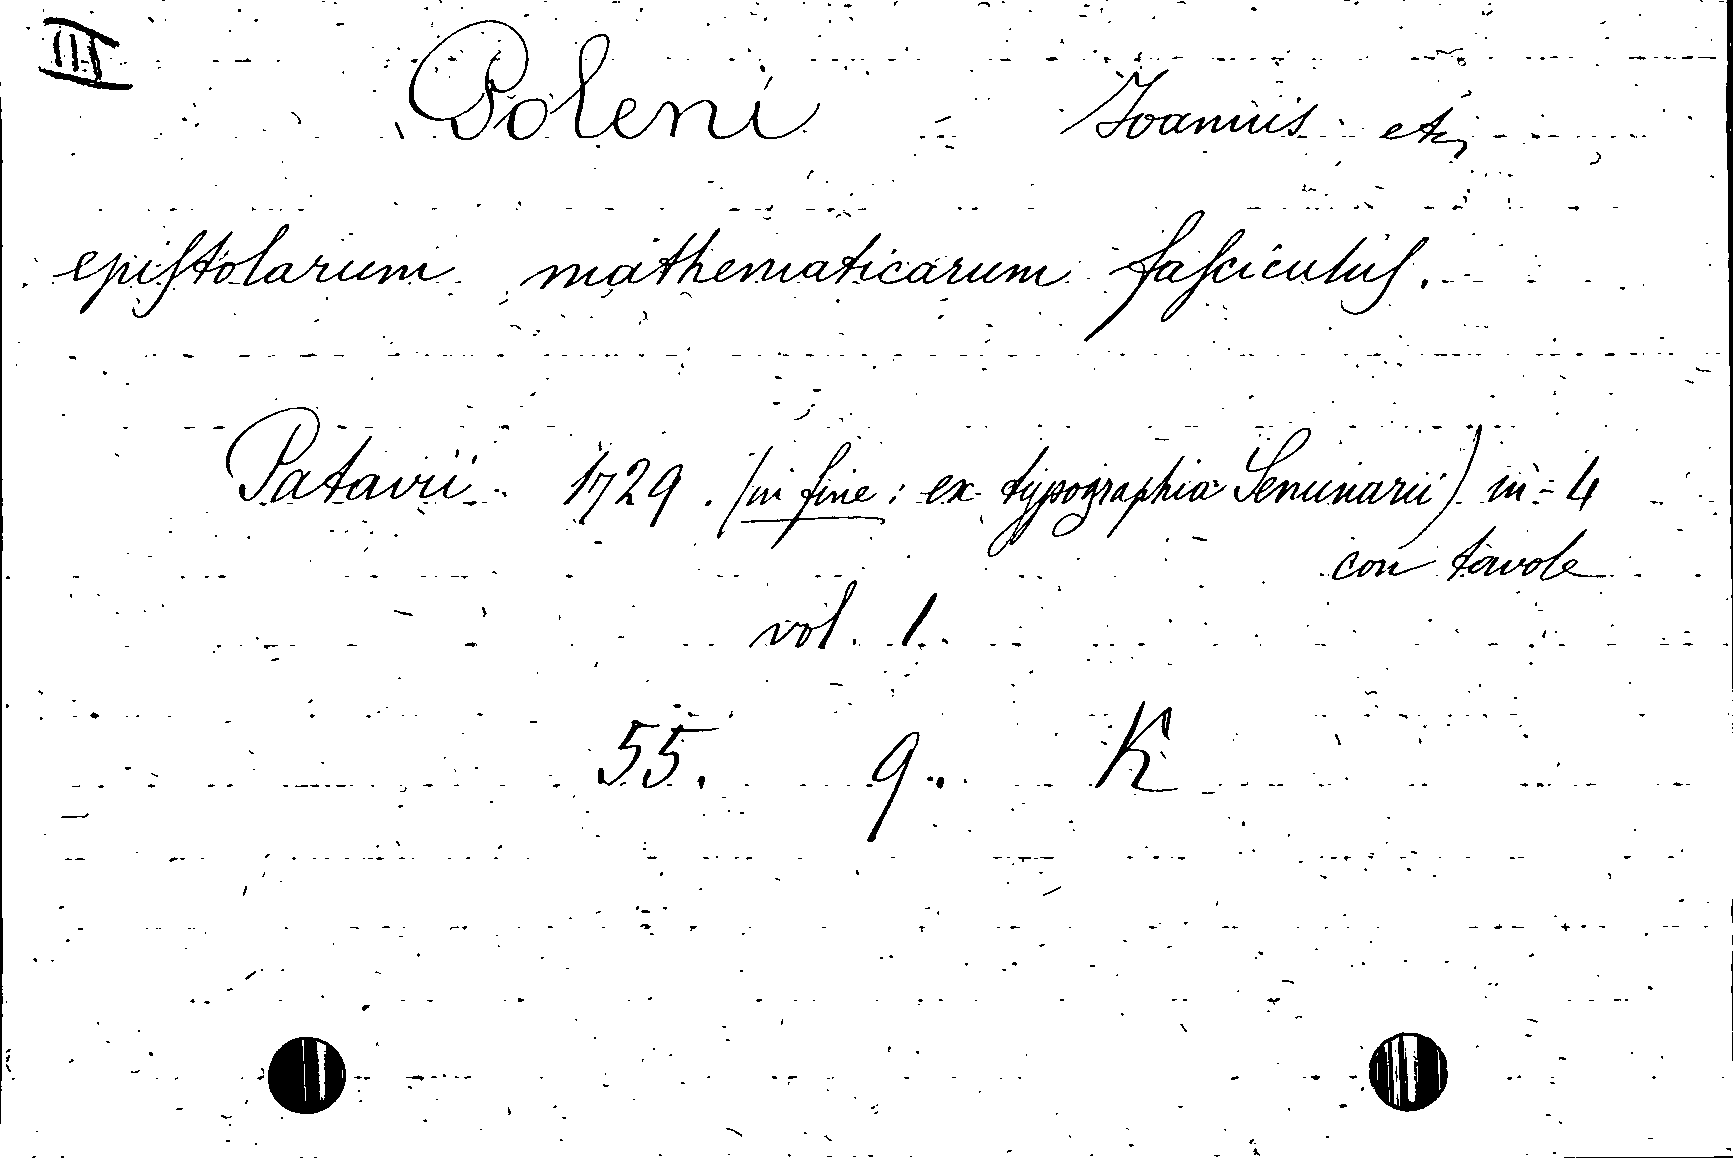 III
Poleni Ioannis etc,
epistolarum mathematicarum fasciculus.
Patavii 1729. (in fine: ex typographia Seminarii) in-4
con tavole
vol. 1.
55. 9. K